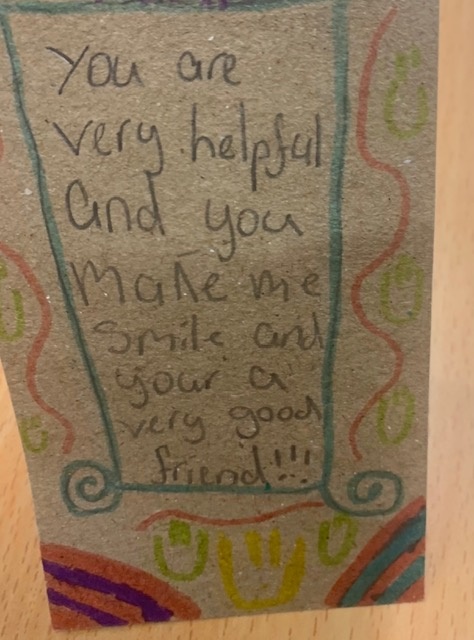 You are
very helpful
and you
make me
smile and
your a
very good
friend!!!